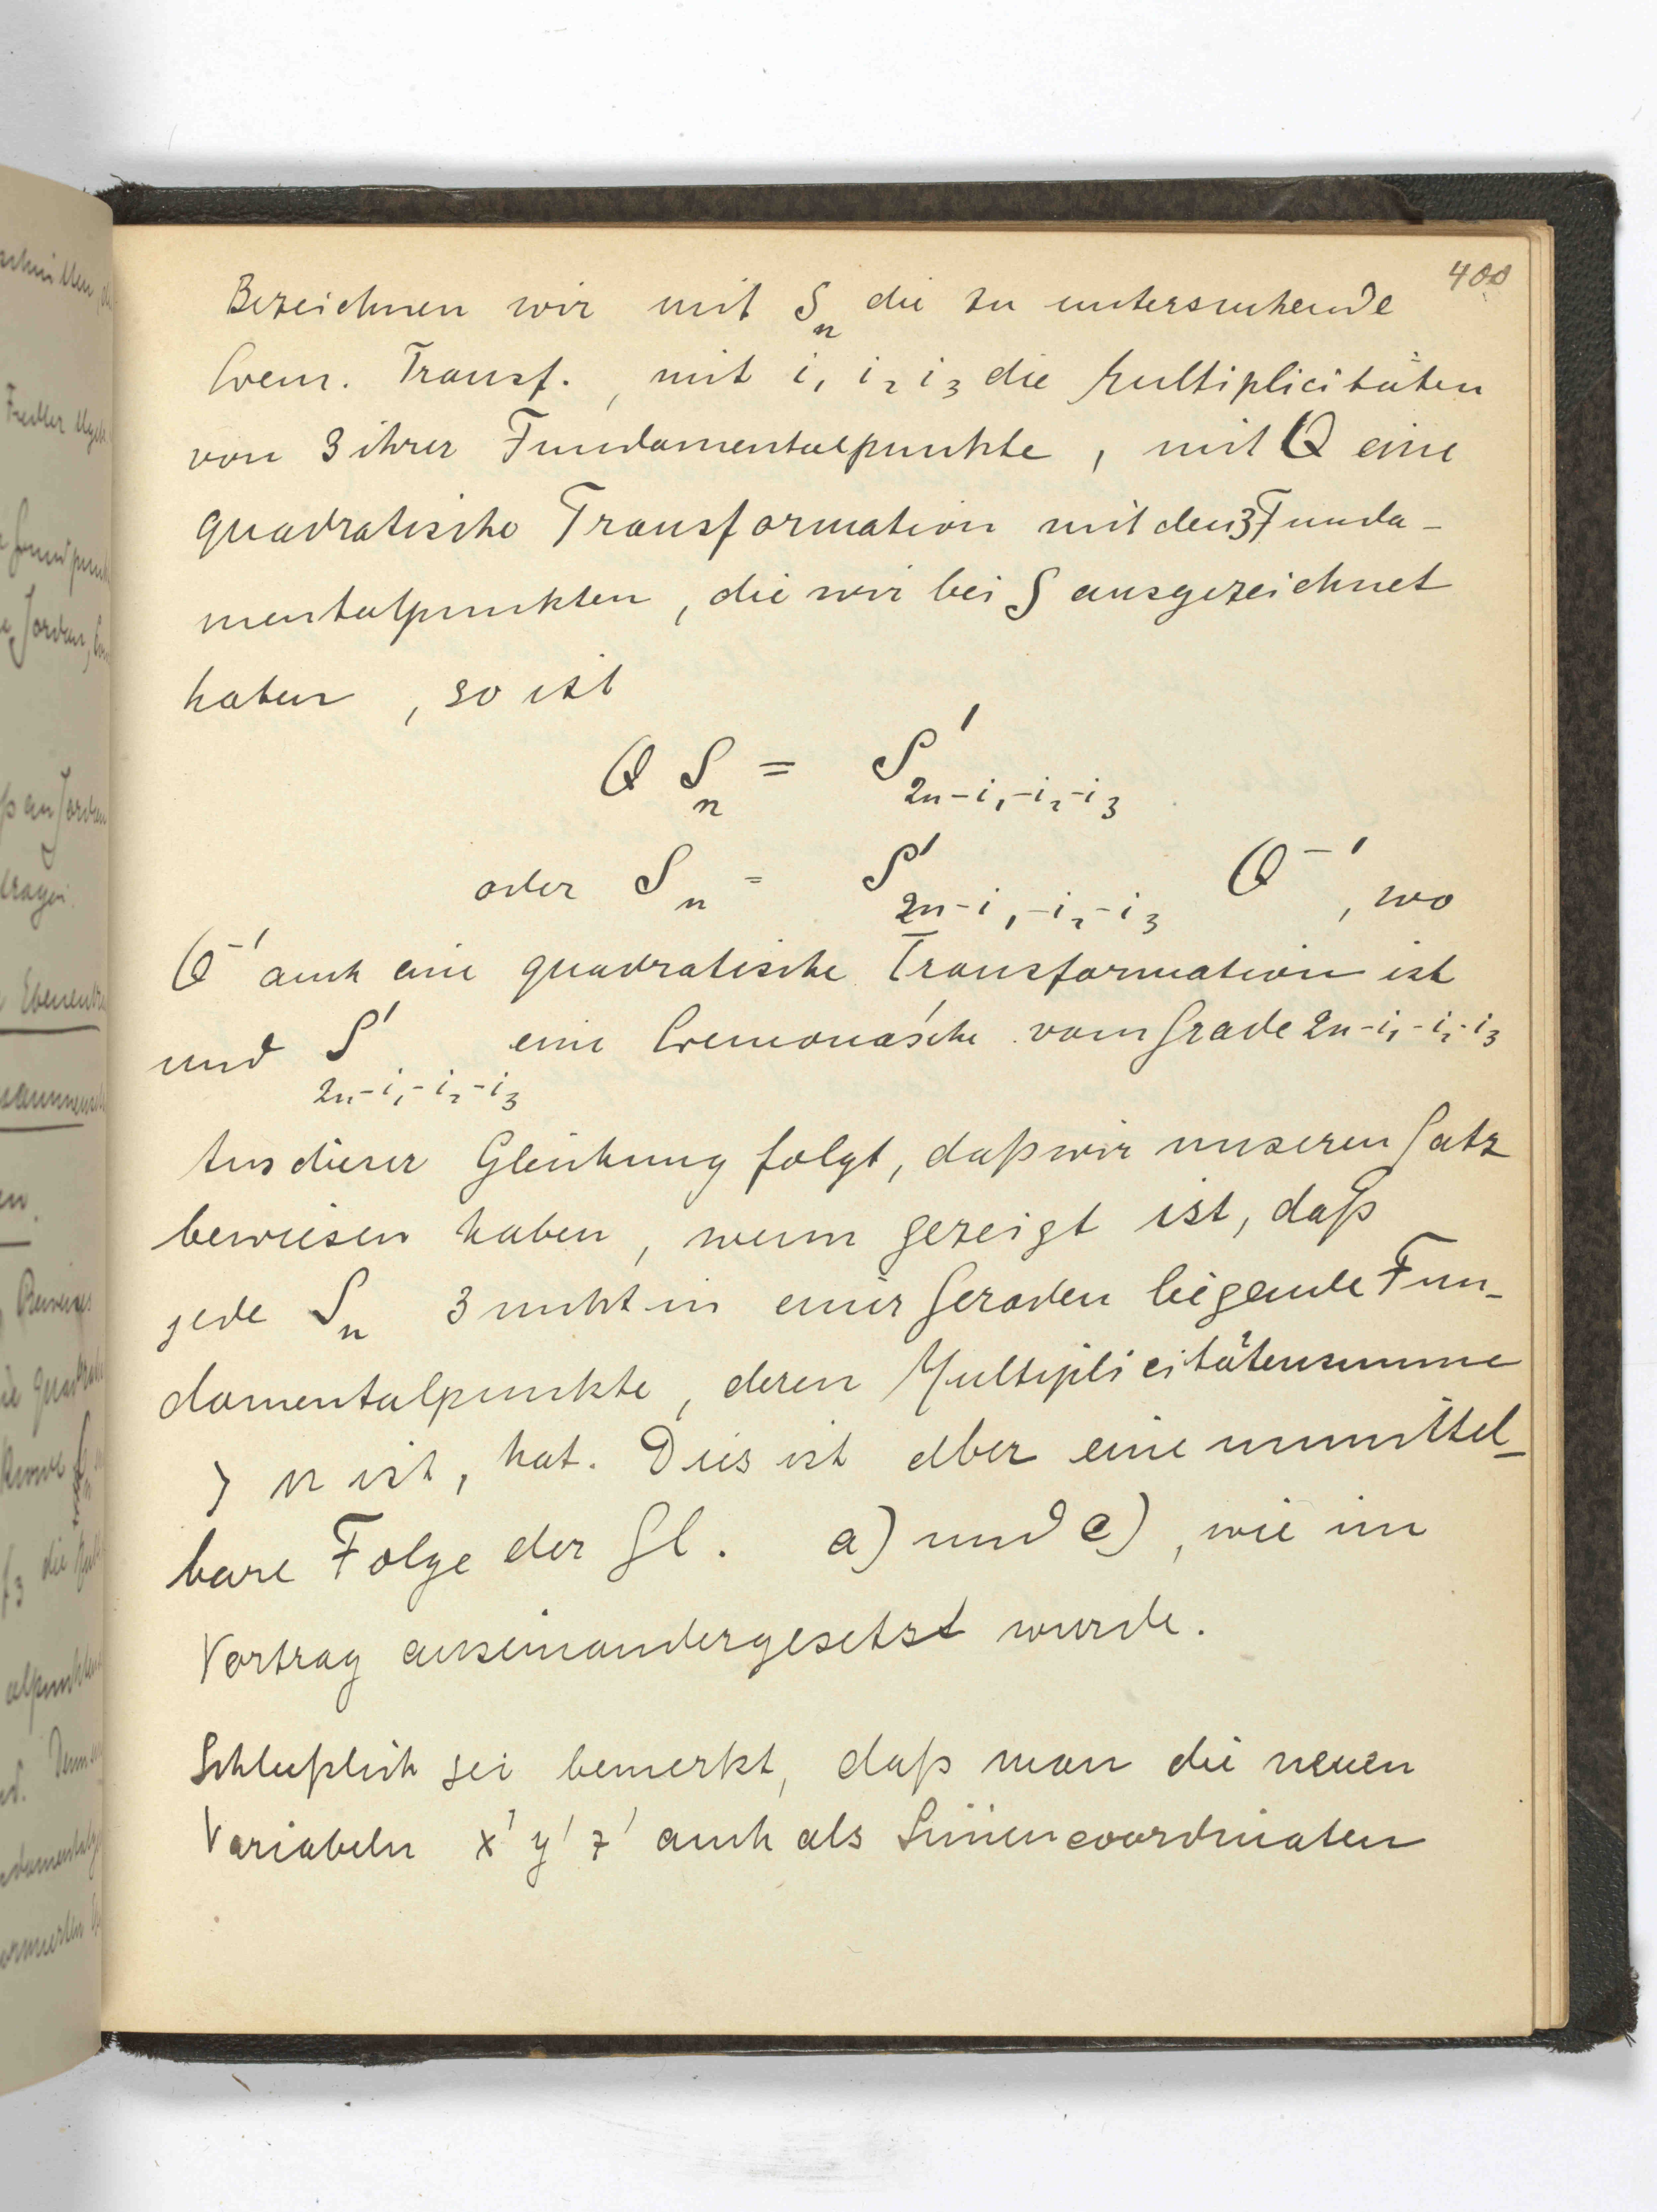 400
Bezeichnen wir mit Sₙ die zu untersuchende
Crem. Transf., mit i₁ i₂ i₃ die Multiplicitäten
von 3 ihrer Fundamentalpunkte, mit Q eine
quadratische Transformation mit den 3 Funda-
mentalpunkten, die wir bei S ausgezeichnet
haben, so ist
Q Sₙ = S'₂ₙ₋ᵢ₁₋ᵢ₂₋ᵢ₃
oder Sₙ = S'₂ₙ₋ᵢ₁₋ᵢ₂₋ᵢ₃ Q⁻¹, wo
Q⁻¹ auch eine quadratische Transformation ist
und S'₂ₙ₋ᵢ₁₋ᵢ₂₋ᵢ₃ eine Cremona'sche vom Grade 2n-i₁-i₂-i₃
Aus dieser Gleichung folgt, daß wir unseren Satz
bewiesen haben, wenn gezeigt ist, daß
jede Sₙ 3 nicht in einer Geraden liegende Fun-
damentalpunkte, deren Multiplicitätensumme
> n ist, hat. Dies ist aber eine unmittel-
bare Folge der Gl. a) und c), wie im
Vortrag auseinandergesetzt wurde.
Schlußlich sei bemerkt, daß man die neuen
Variabeln x' y' z' auch als Liniencoordinaten